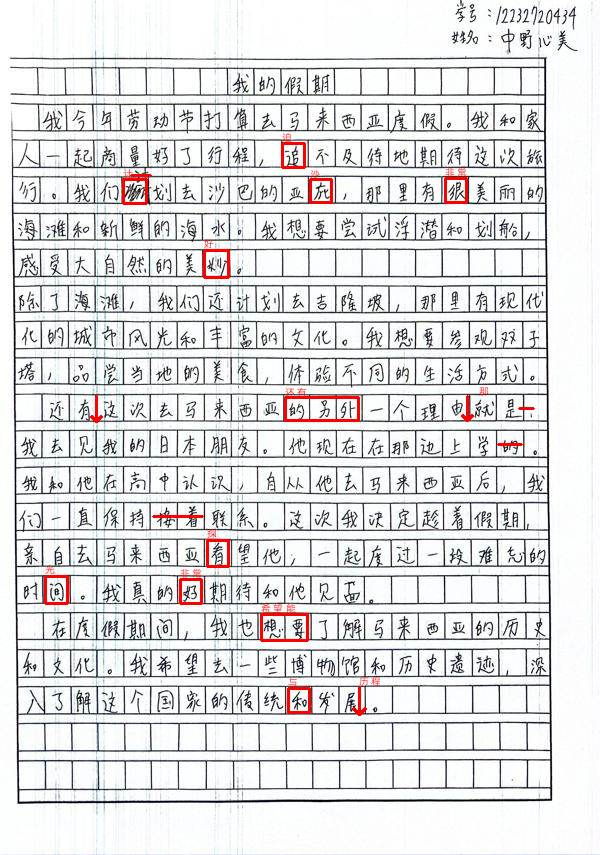 学号：12232720434
姓名：中野心美
我的假期
我今年劳动节打算去马来西亚度假。我和家
迫
人一起商量好了行程，追不及待地期待这次旅
计 沙 非常
行。我们划去沙巴的亚庇，那里有很美丽的
海滩和新鲜的海水。我想要尝试浮潜和划船，
好
感受大自然的美妙。
除了海滩，我们还计划去吉隆坡，那里有现代
化的城市风光和丰富的文化。我想要参观双子
塔，品尝当地的美食，体验不同的生活方式。
还有 那
还有这次去马来西亚的另外一个理由就是：
我去见我的日本朋友。他现在在那边上学的。
我和他在高中认识，自从他去马来西亚后，我
们一直保持接着联系。这次我决定趁着假期，
探
亲自去马来西亚看望他，一起度过一段难忘的
光 非常
时间。我真的好期待和他见面。
希望能
在度假期间，我也想要了解马来西亚的历史
和文化。我希望去一些博物馆和历史遗迹，深
与 历程
入了解这个国家的传统和发展。